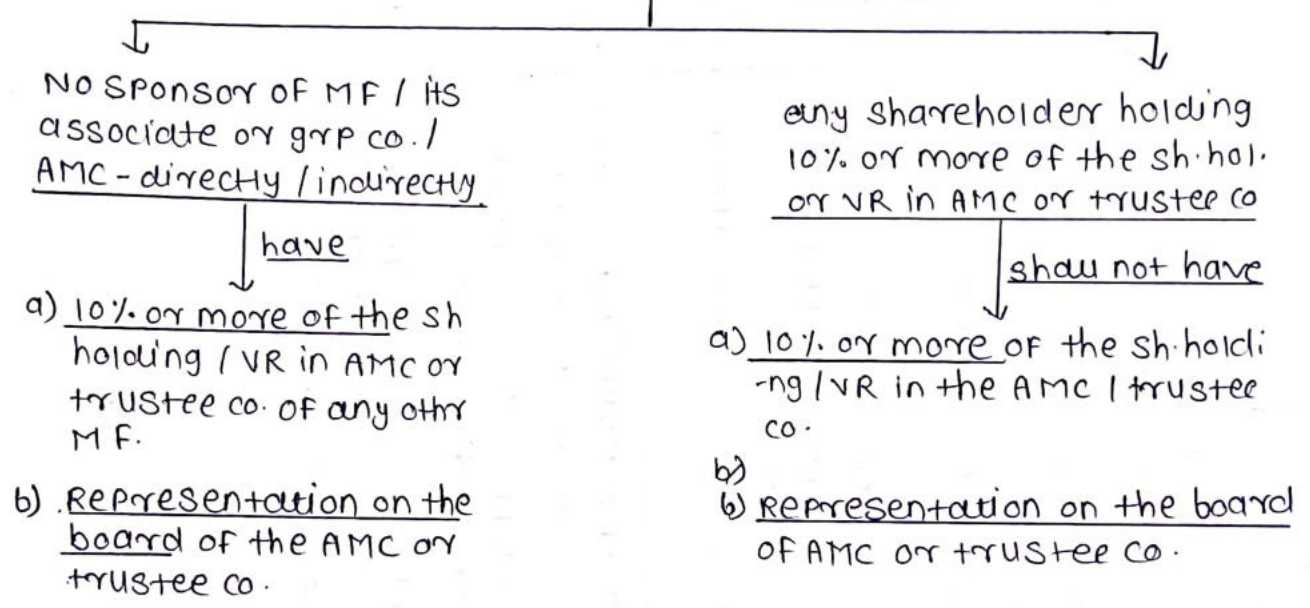 NO Sponsor OF MF / its
associate or grp co. /
AMC - directly / indirectly
have
a) 10% or more of the sh
holding / VR in AMC or
trustee co. of any othr
MF.
b) Representation on the
board of the AMC or
trustee co.
any shareholder holding
10% or more of the sh.hol.
or VR in AMC or trustee co
shall not have
a) 10% or more of the sh.holdi
-ng / VR in the AMC / trustee
co.
b)
b) Representation on the board
of AMC or trustee co.